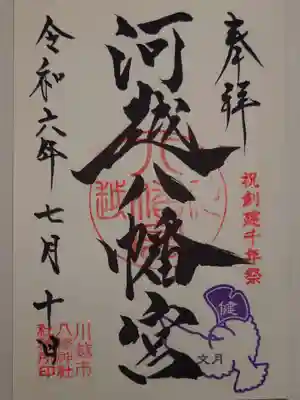 奉祥
祝創建千年祭
河越八幡宮
令和六年七月十日
川越市
八幡神社
社務所印
健
文月